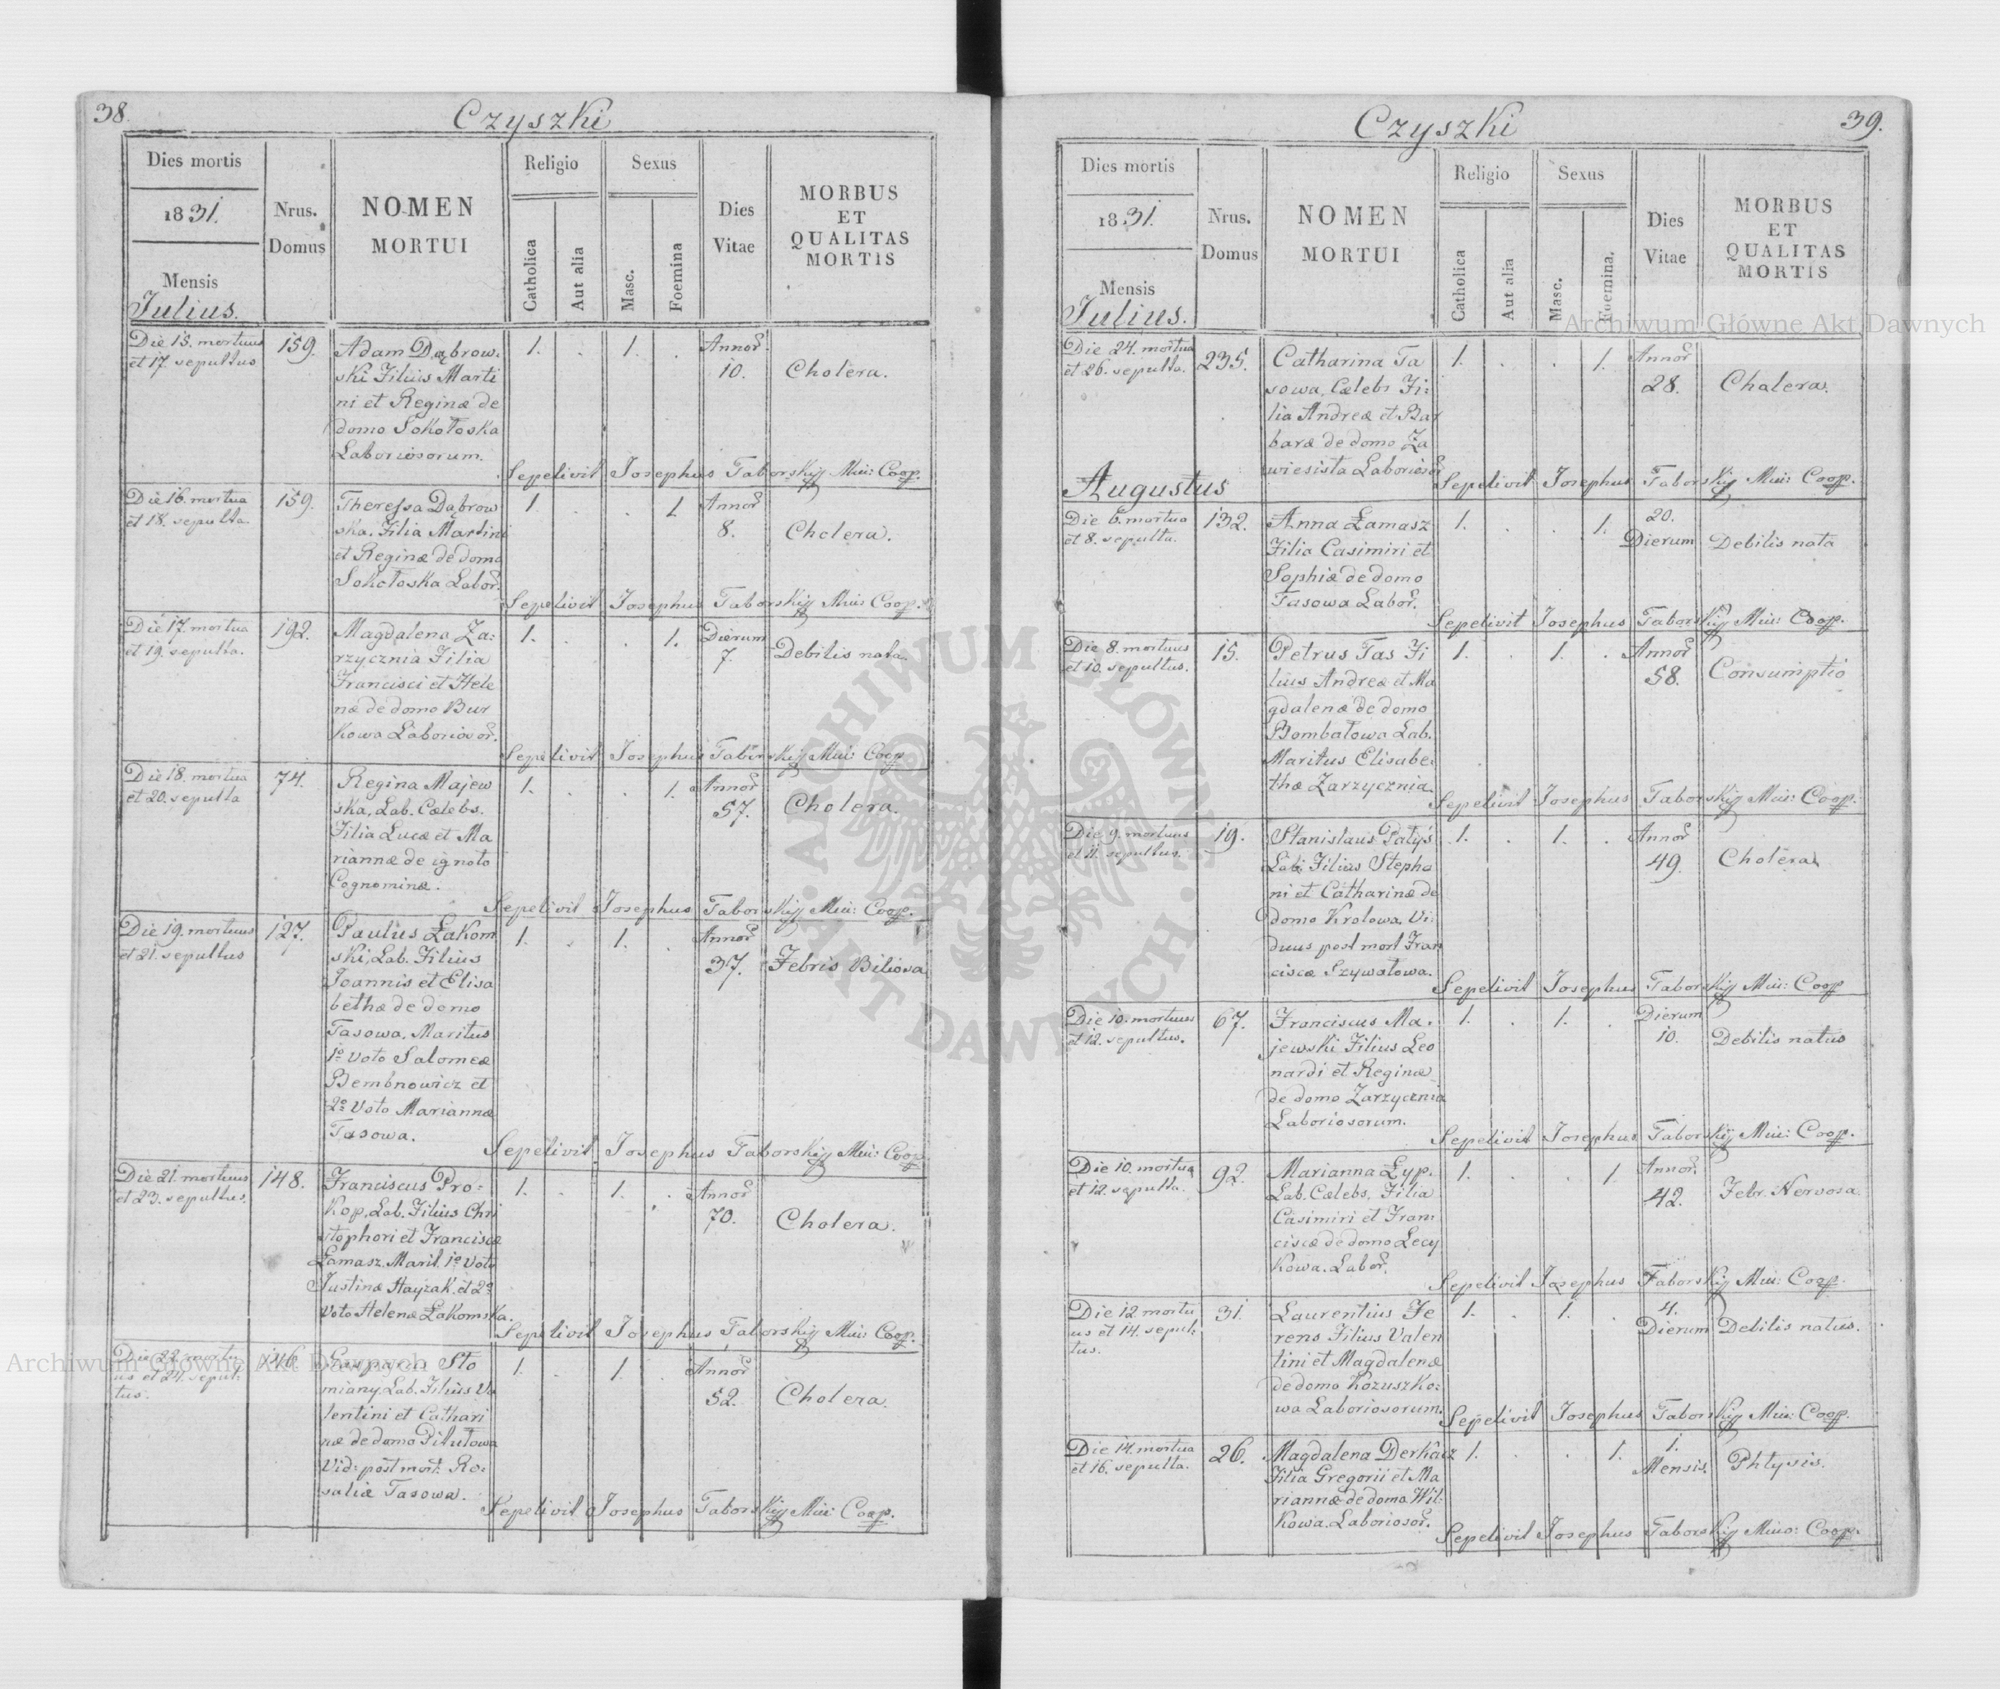 38.
Czyszki
Dies mortis
1831.
Mensis
Julius.
Nrus.
Domus
NOMEN
MORTUI
Religio
Catholica
Aut alia
Sexus
Masc.
Foemina
Dies
Vitae
MORBUS
ET
QUALITAS
MORTIS
Die 15. mortuus
et 17. sepultus
159.
Adam Dąbrow-
ski Filius Marti
ni et Reginæ de
domo Sokołoska
Laboriosorum.
1. . 1. .
Annor
10.
Cholera.
Sepelivit Josephus Taborskij Miu: Coop.
Die 16. mortua
et 18. sepulta.
159.
Theressa Dąbrow
ska. Filia Martini
et Reginæ de domo
Sokołoska Labor.
1. . . 1.
Annor
8.
Cholera.
Sepelivit Josephus Taborskij Miu: Coop.
Die 17. mortua
et 19. sepulta.
192.
Magdalena Za:
rzycznia Filia
Francisci et Hele
næ de domo Bur
kowa Laborior.
1. . . 1.
Dierum
7.
Debilis nata.
Sepelivit Josephus Taborskij Miu: Coop
Die 18. mortua
et 20. sepulta
74.
Regina Majew
ska, Lab. Cælebs.
Filia Lucæ et Ma
riannæ de ignoto
Cognominæ.
1. . . 1.
Annor
57.
Cholera.
Sepelivit Josephus Taborskij Miu: Coop.
Die 19. mortuus
et 21. sepultus
127.
Paulus Łakom
ski, Lab. Filius
Joannis et Elisa
bethæ de domo
Tasowa, Maritus
1º voto Salomeæ
Bembnowicz et
2º voto Mariannæ
Tasowa.
1. . 1. .
Annor
37.
Febris Biliosa
Sepelivit Josephus Taborskij Miu: Coop
Die 21. mortuus
et 23. sepultus.
148.
Franciscus Pro-
kop, Lab. Filius Chri
stophori et Franciscæ
Łamasz. Marit. 1º voto
Justinæ Hayzak. et 2º
voto Helenæ Łakomska.
1. . 1. .
Annor
70.
Cholera.
Sepelivit Josephus Taborskij Miu: Coop.
Die 22. mortu
us et 24. sepul:
tus.
146.
Gasparus Sto
miany. Lab. Filius Va
lentini et Cathari
næ de domo Pilutowa
Vid: post mort. Ro:
saliæ Tasowa.
1. . 1. .
Annor
52.
Cholera.
Sepelivit Josephus Taborskij Miu: Coop.
39.
Czyszki
Dies mortis
1831.
Mensis
Julius.
Nrus.
Domus
NOMEN
MORTUI
Religio
Catholica
Aut alia
Sexus
Masc.
Foemina.
Dies
Vitae
MORBUS
ET
QUALITAS
MORTIS
Die 24. mortua
et 26. sepulta.
235.
Catharina Ta
sowa, Cælebs Fi:
lia Andreæ et Bar
baræ de domo Za
wiesista Laborior
1. . . 1.
Annor
28.
Cholera.
Sepelivit Josephus Taborskij Miu: Coop.
Augustus
Die 6. mortua
et 8. sepulta.
132.
Anna Łamasz
Filia Casimiri et
Sophiæ de domo
Tasowa Labor.
1. . . 1.
20.
Dierum
Debilis nata
Sepelivit Josephus Taborskij Miu: Coop.
Die 8. mortuus
et 10. sepultus.
15.
Petrus Tas Fi
lius Andreæ et Ma
gdalenæ de domo
Bombałowa Lab.
Maritus Elisabe-
thæ Zarzycznia.
1. . 1. .
Annor
58.
Consumptio
Sepelivit Josephus Taborskij Miu: Coop.
Die 9. mortuus
et 11. sepultus.
19.
Stanislaus Patyś
Lab. Filius Stepha
ni et Catharinæ de
domo Krolowa. Vi-
duus post mort Fran
ciscæ Szywałowa.
1. . 1. .
Annor
49.
Cholera
Sepelivit Josephus Taborskij Miu: Coop
Die 10. mortuus
et 12. sepultus.
67.
Franciscus Ma-
jewski Filius Leo
nardi et Reginæ
de domo Zarzycznia
Laboriosorum.
1. . 1. .
Dierum
10.
Debilis natus
Sepelivit Josephus Taborskij Miu: Coop.
Die 10. mortua
et 12. sepulta.
92.
Marianna Łyp.
Lab. Cælebs, Filia
Casimiri et Fran:
ciscæ de domo Lecy
kowa. Labor.
1. . . 1
Annor.
42.
Febr. Nervosa
Sepelivit Josephus Taborskij Miu: Coop.
Die 12 mortu
us et 14. sepul:
tus.
31.
Laurentius Fe
rens Filius Valen
tini et Magdalenæ
de domo Kozuszko:
wa Laboriosorum.
1. . 1. .
4.
Dierum
Debilis natus.
Sepelivit Josephus Taborskij Miu: Coop.
Die 14. mortua
et 16. sepulta.
26.
Magdalena Derkacz
Filia Gregorii et Ma
riannæ de domo Wil-
kowa. Laborior.
1. . . 1.
1.
Mensis.
Phtysis.
Sepelivit Josephus Taborskij Mino: Coop.
Archiwum Główne Akt Dawnych
Archiwum Główne Akt Dawnych
ARCHIWUM GŁÓWNE · AKT DAWNYCH ·